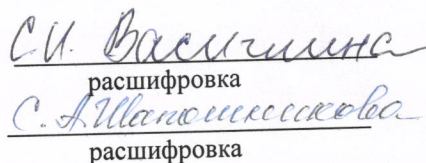 С.И. Васичкина
расшифровка
С.А.Шапошникова
расшифровка